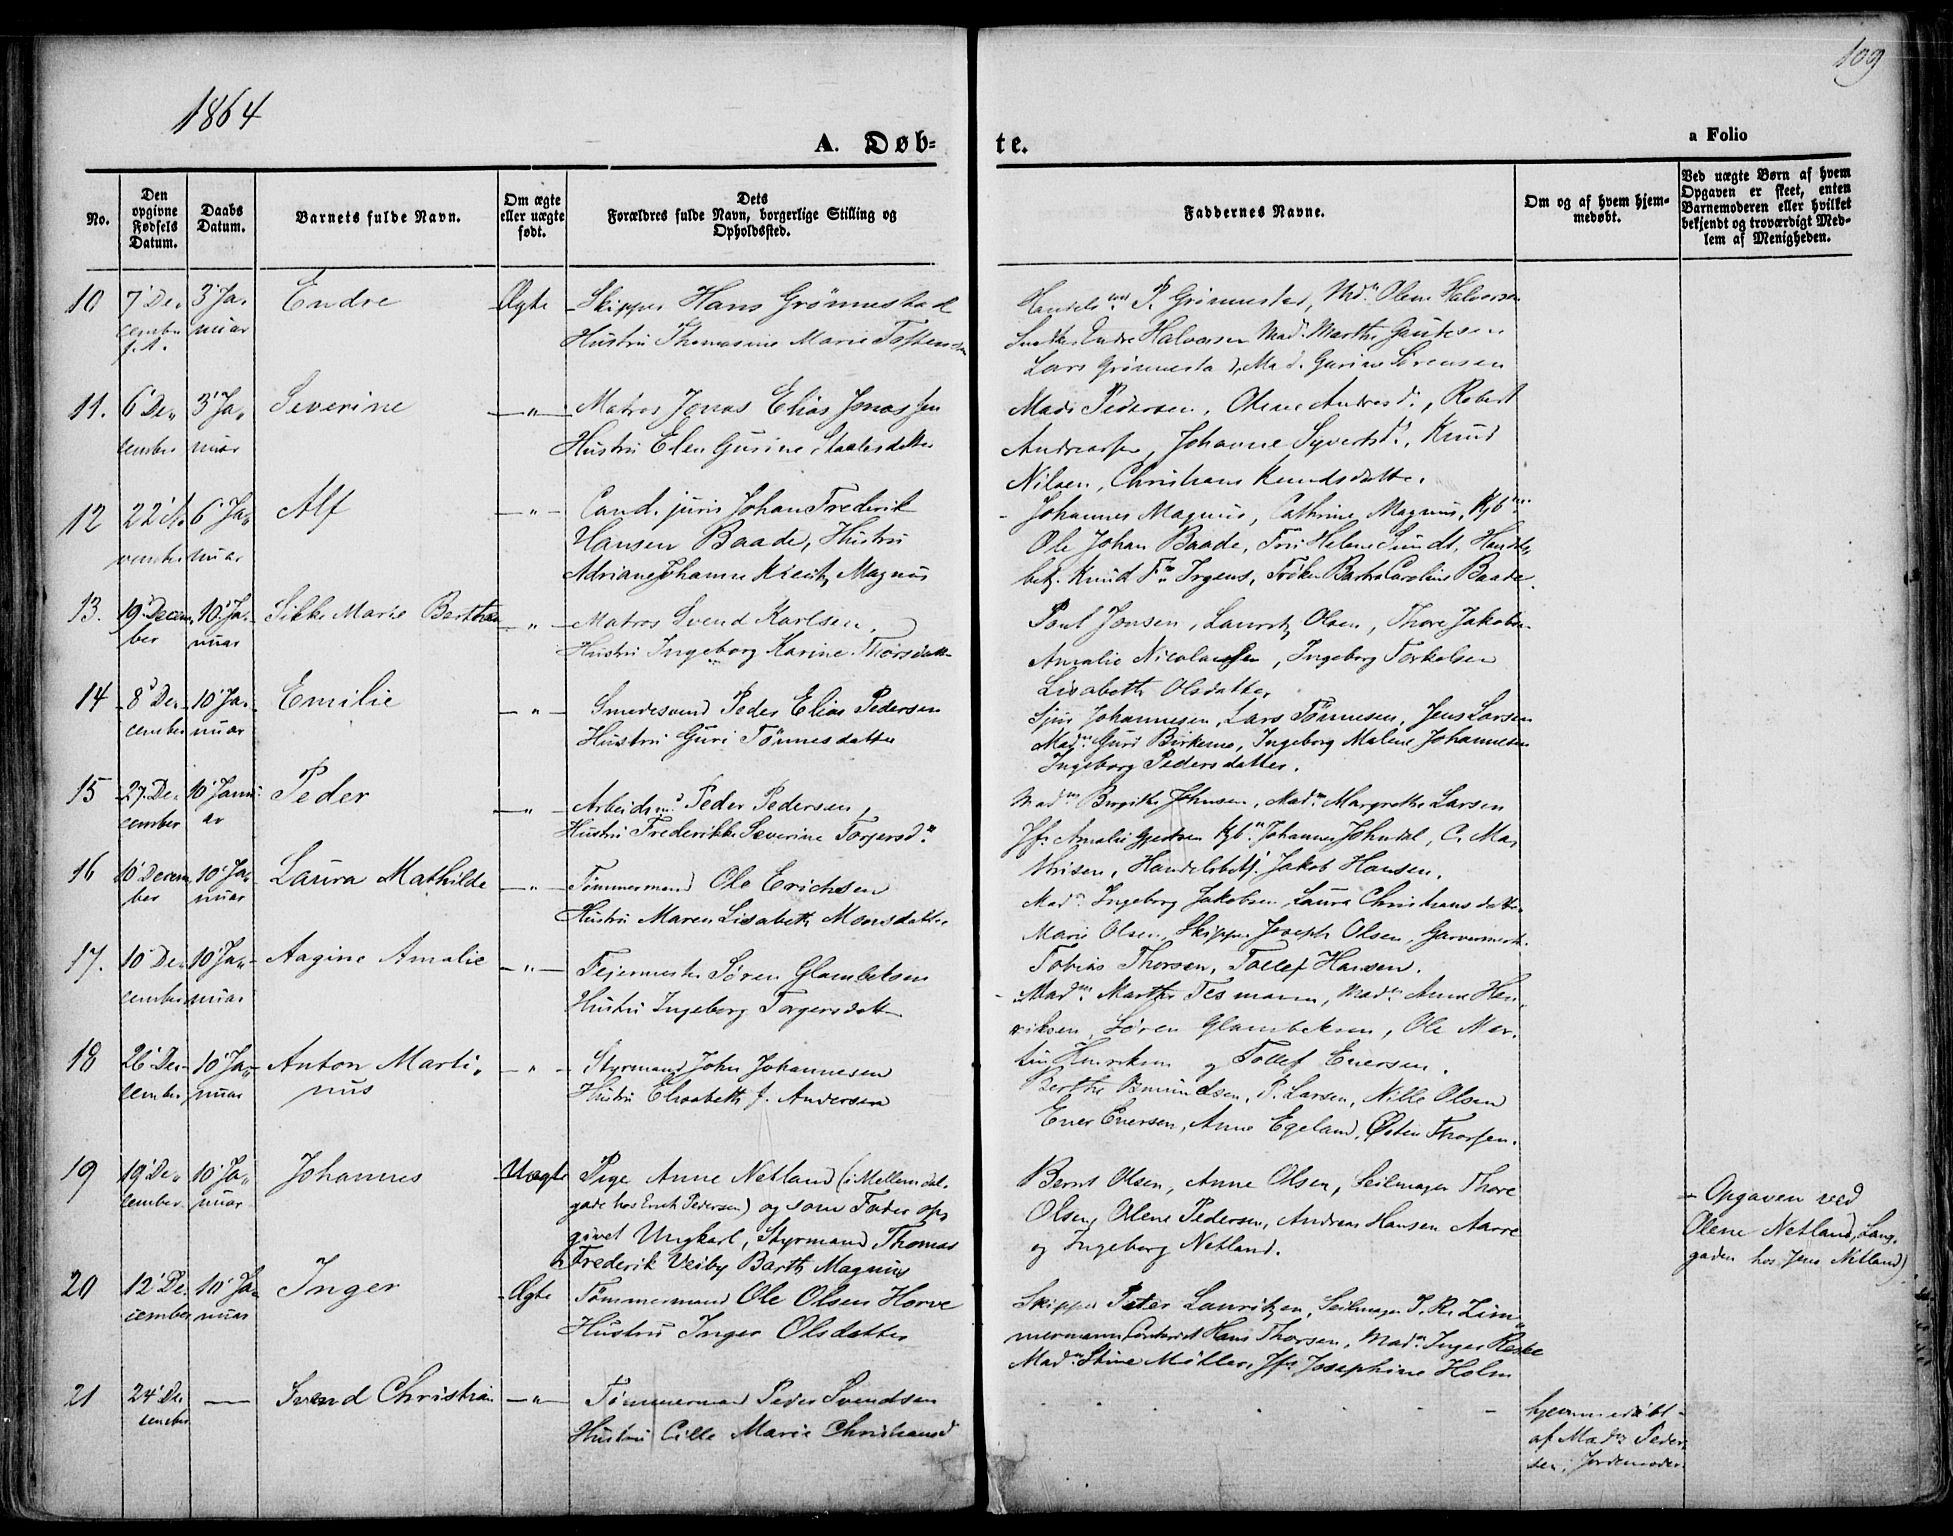 109
1864
A. Døb-
te.
a Folio
No.
Den opgivne Fødsels Datum.
Daabs Datum.
Barnets fulde Navn.
Om ægte eller uægte født.
Dets Forældres fulde Navn, borgerlige Stilling og Opholdssted.
Faddernes Navne.
Om og af hvem hjemmedøbt.
Ved uægte Børn af hvem Opgaven er skeet, enten Barnemoderen eller hvilket bekjendt og troværdigt Medlem af Menigheden.
10 7' De- 3' Ja- Endre Ægte Skipper Hans Grønnestad
cember nuar Hustru Thomasine Marie
P. Grönnestad, Mdm Olene Halvorsen
Endre Halvorsen Mad. Marthe Gautesen
Lars Grönnestad, Mad. Gurine Sörensen
11. 6' De- 3' Ja- Severine -"- Matros Jonas Elias Jonassen
cember nuar Hustru Elen Gurine Staalesdatter
Mads Pedersen, Olene Andresd., Robert
Andreassen, Johanne Syvertsd., Knud
Nilsen, Christiane Knudsdatter.
12 22' No 6' Ja- Alf -"- Cand. juris Johan Frederik
vember nuar Hansen Baade, Hustru
Adriane Johanne Kientz Magnus
Johannes Magnus, Cathrine Magnus, Kjbm
Ole Johan Baade, Fru Helene Sundt, Handels
betj. Knud F. Irgens, Frøken Bartha Caroline Baade.
13. 19' Decem 10' Ja- Sikke Marie Berthea -"- Matros Svend Karlsen,
ber nuar Hustru Ingeborg Karine Thorsdatter
Poul Jonsen, Lauritz Olsen, Thore Jakobsen
Amalie Nicolaisen, Ingeborg Torkelsen
Lisabeth Olsdatter
14 8' De- 10' Ja- Emilie -"- Smedesvend Peder Elias Pedersen
cember nuar Hustru Guri Tönnesdatter
Sjur Johannesen, Lars Tönnesen, Jens Larsen
Madm Guri Birkenes, Ingeborg Malene Johannesen
Ingeborg Pedersdatter.
15 27. De- 10' Janu- Peder -"- Arbeidsmd Peder Pedersen,
cember ar Hustru Frederikke Severine Torgersd.
Madm Birgithe Johnsen, Madm Margrethe Larsen
Jfr Amalie Gjertsen Kjbm Johannes Johndal, C. Ma-
thisen, Handelsbetj. Jakob Hansen.
16 10' Decem 10' Ja- Laura Mathilde -"- Tömmermand Ole Erichsen
ber nuar Hustru Maren Lisabeth Monsdatter
Madm Ingeborg Jakobsen, Laura Christiansdatter
Marie Olsen, Skipper Joseph Olsen, Garvermest.
Tobias Thorsen, Tollef Hansen.
17. 10' De- 10' Ja- Aagine Amalie -"- Feiermester Sören Glambeksen
cember nuar Hustru Ingeborg Torgersdatter
Madm Marthe Tesmann, Madm Anne Hen-
riksen, Sören Glambeksen, Ole Mar-
tin Henriksen og Tollef Enersen.
18 26' De- 10' Ja- Anton Marti- -"- Styrmand John Johannesen
cember nuar nus Hustru Elisabeth f. Andersen
Berthe Asmundsen, P. Larsen, Nille Olsen
Ener Enersen, Anne Egeland, Østen Thorsen.
19 19' De- 10' Ja- Johannes Uægte Pige Anne Netland (i Mellemdal-
cember nuar gade hos Erik Pedersen) og som Fader op-
givet Ungkarl, Styrmand Thomas
Frederik Veiby Barth Magnus
Bernt Olsen, Anne Olsen, Seilmager Thore
Olsen, Olene Pedersen, Andreas Hansen Aarre
og Ingeborg Netland.
- Opgaven ved
Olene Netland, Lang-
gaden hos Jens Netland)
20 12' De- 10' Ja- Inger Ægte Tömmermand Ole Olsen Horve
cember nuar Hustru Inger Olsdatter
Skipper Peter Lauritzen, Seilmager J. R. Zim-
mermann, Hans Thorsen, Madm Inger Reske
Madm Stine Möller, Jfr Josephine Holm
21 24' De- — Svend Christian -"- Tömmermand Peder Svendsen
cember Hustru Cille Marie Christiansd
hjemmedöbt
af Madm Peder-
sen, Jordemoder.